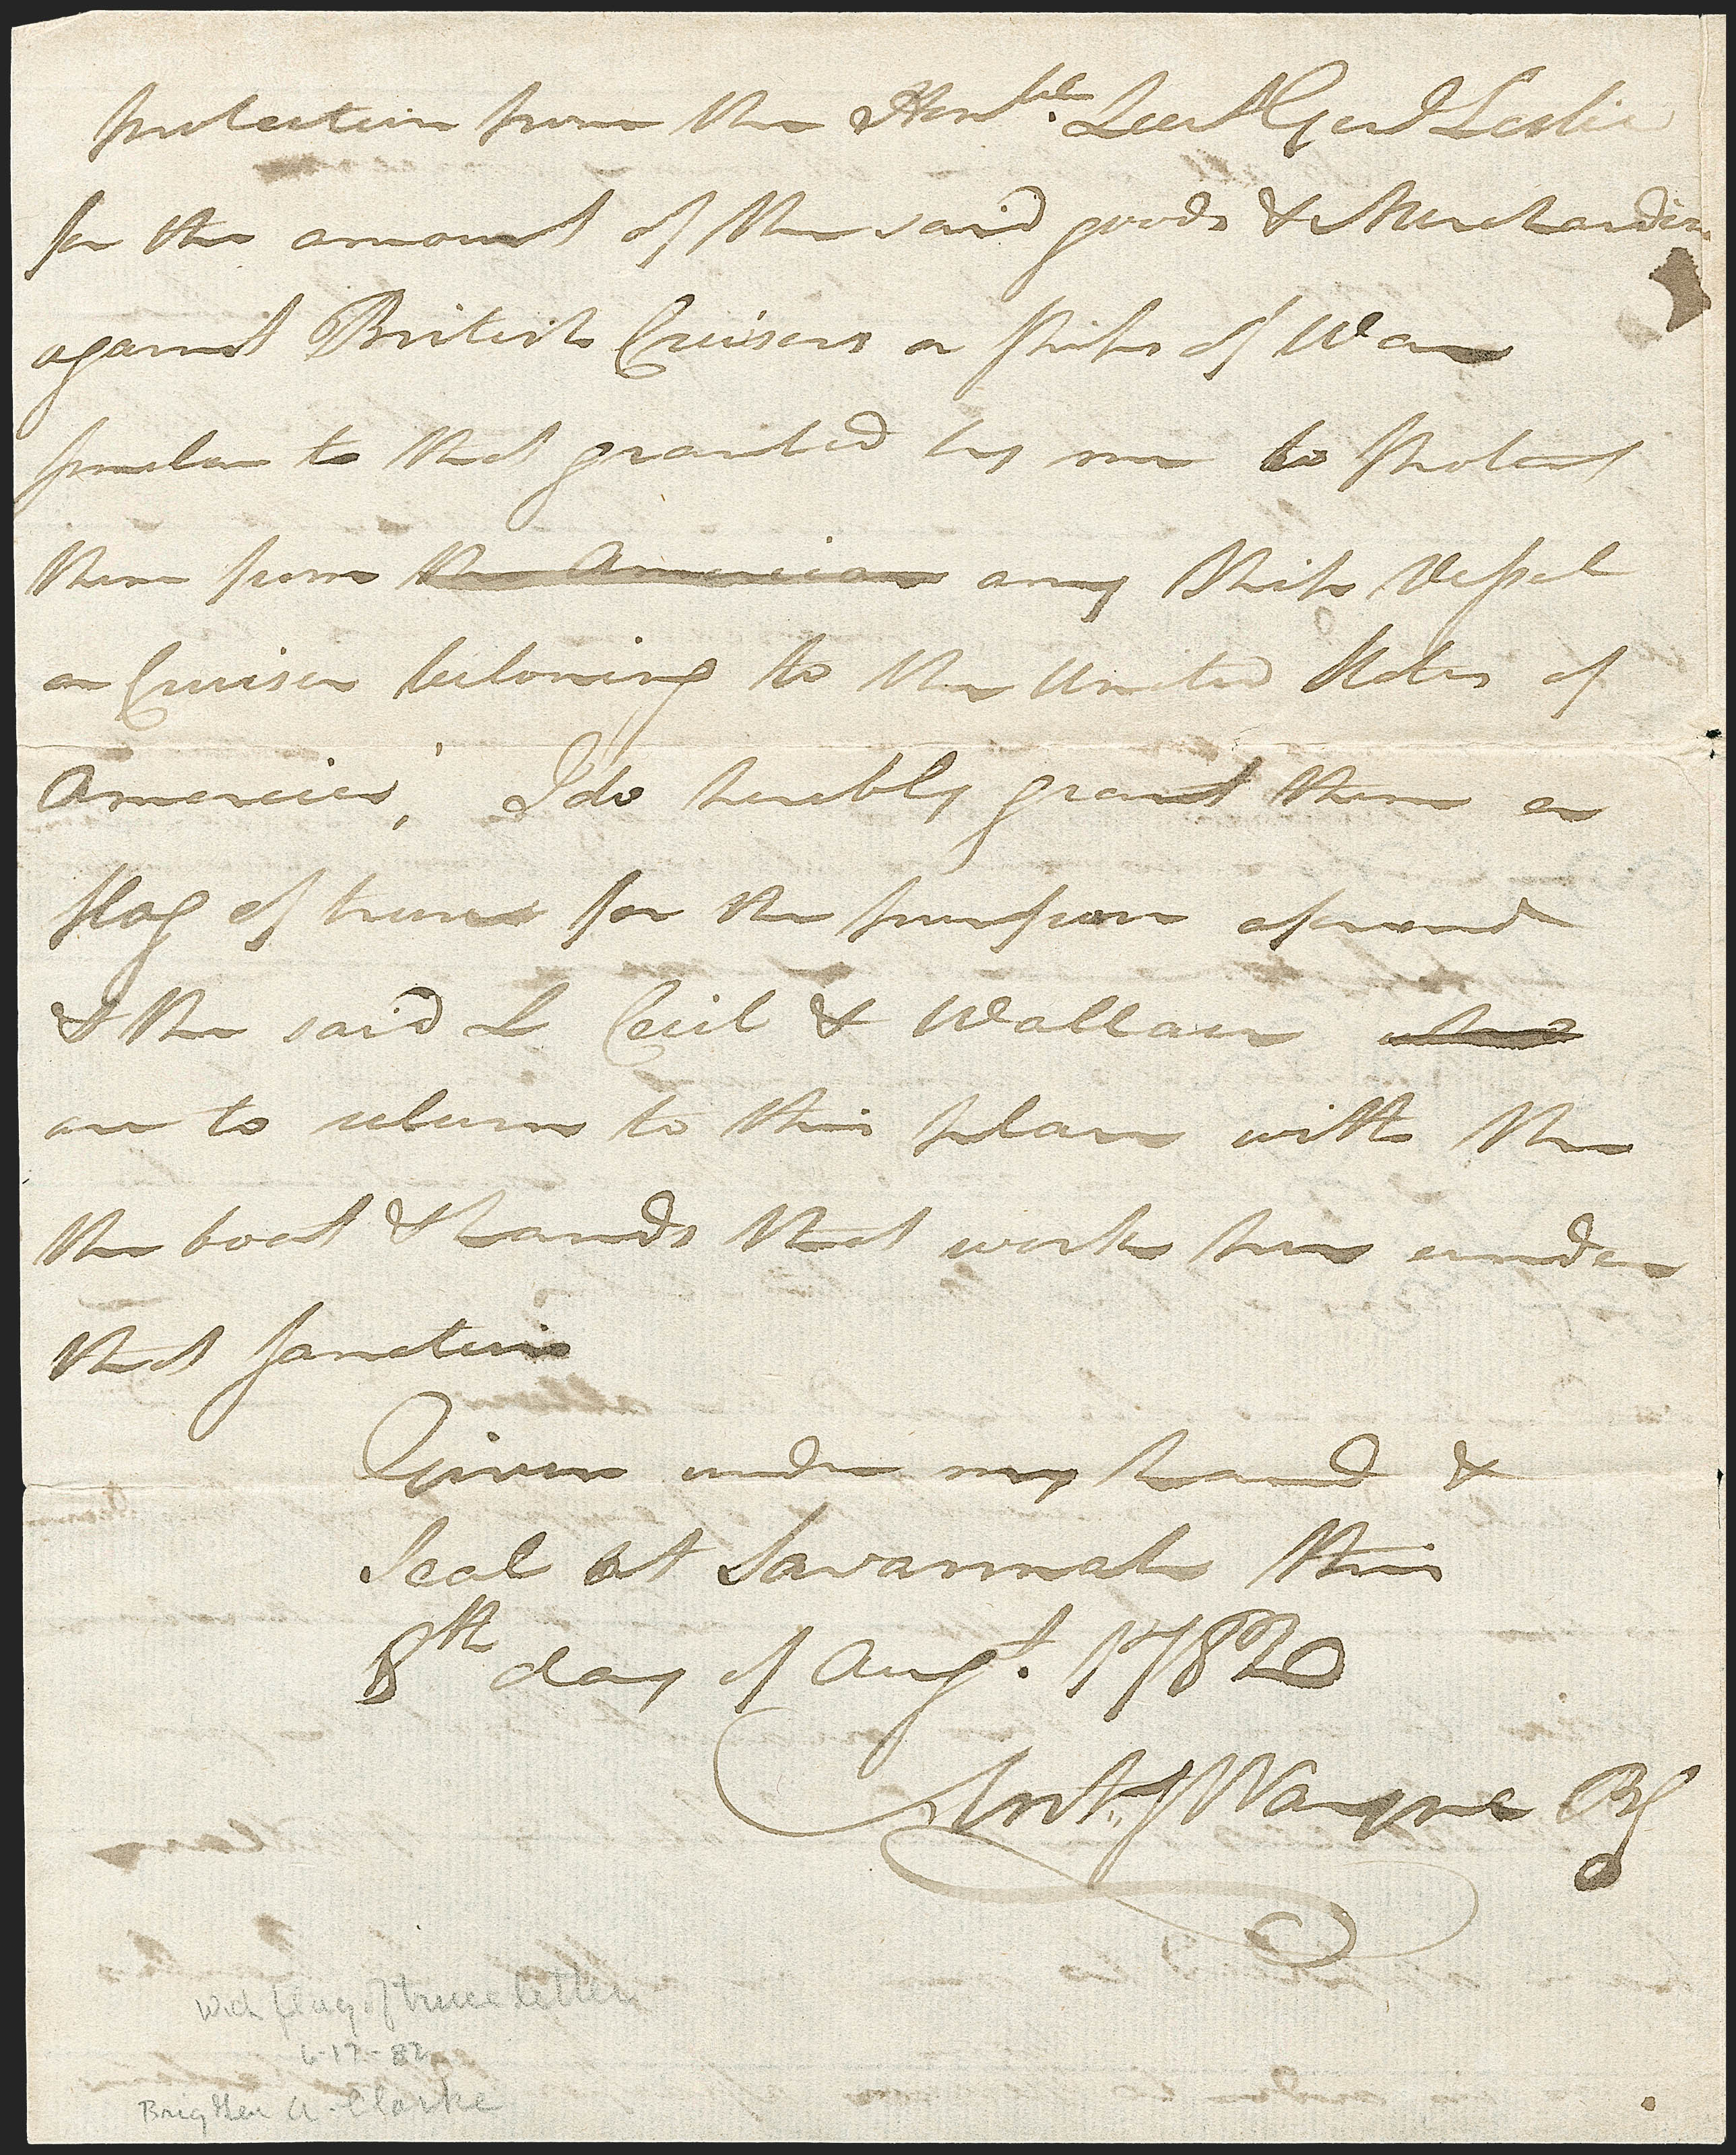 protection from the Honble. Lieut Genl Leslie
for the amount of the said goods & Merchandize
against British Cruisers or Ships of War
similar to that granted by me to protect
them from the American any Ship Vessel
or Cruiser beloning to the United States of
America, I do herebly grant them a
flag of truce for the purpose afsd
& the said L Cecil & Wallace
are to return to this place with the
the boat & hands that work her under
that Sanction
Given under my hand &
Seal at Savannah this
8th day of Augt. 1782
Anty Wayne BG
with flag of truce letter
6-17-82
Brig Gen A. Clarke